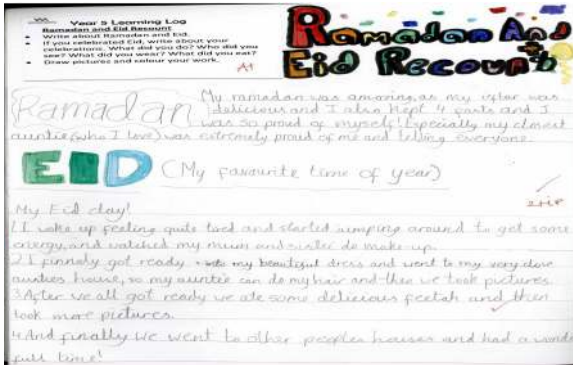 Year 5 Learning Log
Ramadan and Eid Recount
• Write about Ramadan and Eid.
• If you celebrated Eid, write about your
celebrations. What did you do? Who did you
see? What did you wear? What did you eat?
• Draw pictures and colour your work.
A1
Ramadan And
Eid Recount
Ramadan
My ramadan was amazing, as my iftar was
delicious and I also kept 4 fasts and I
was so proud of myself! Especially my closest
auntie (who I love) was extremely proud of me and telling everyone.
EID (My favourite time of year)
My Eid day!
1 I woke up feeling quite tired and started jumping around to get some
energy, and watched my mum and sister do make-up.
2 I finnaly got ready into my beautiful dress and went to my very close
aunties house, so my auntie can do my hair and then we took pictures.
3 After we all got ready we ate some delicious feetah and then
took more pictures.
4 And finally we went to other peoples houses and had a wonde
full time!